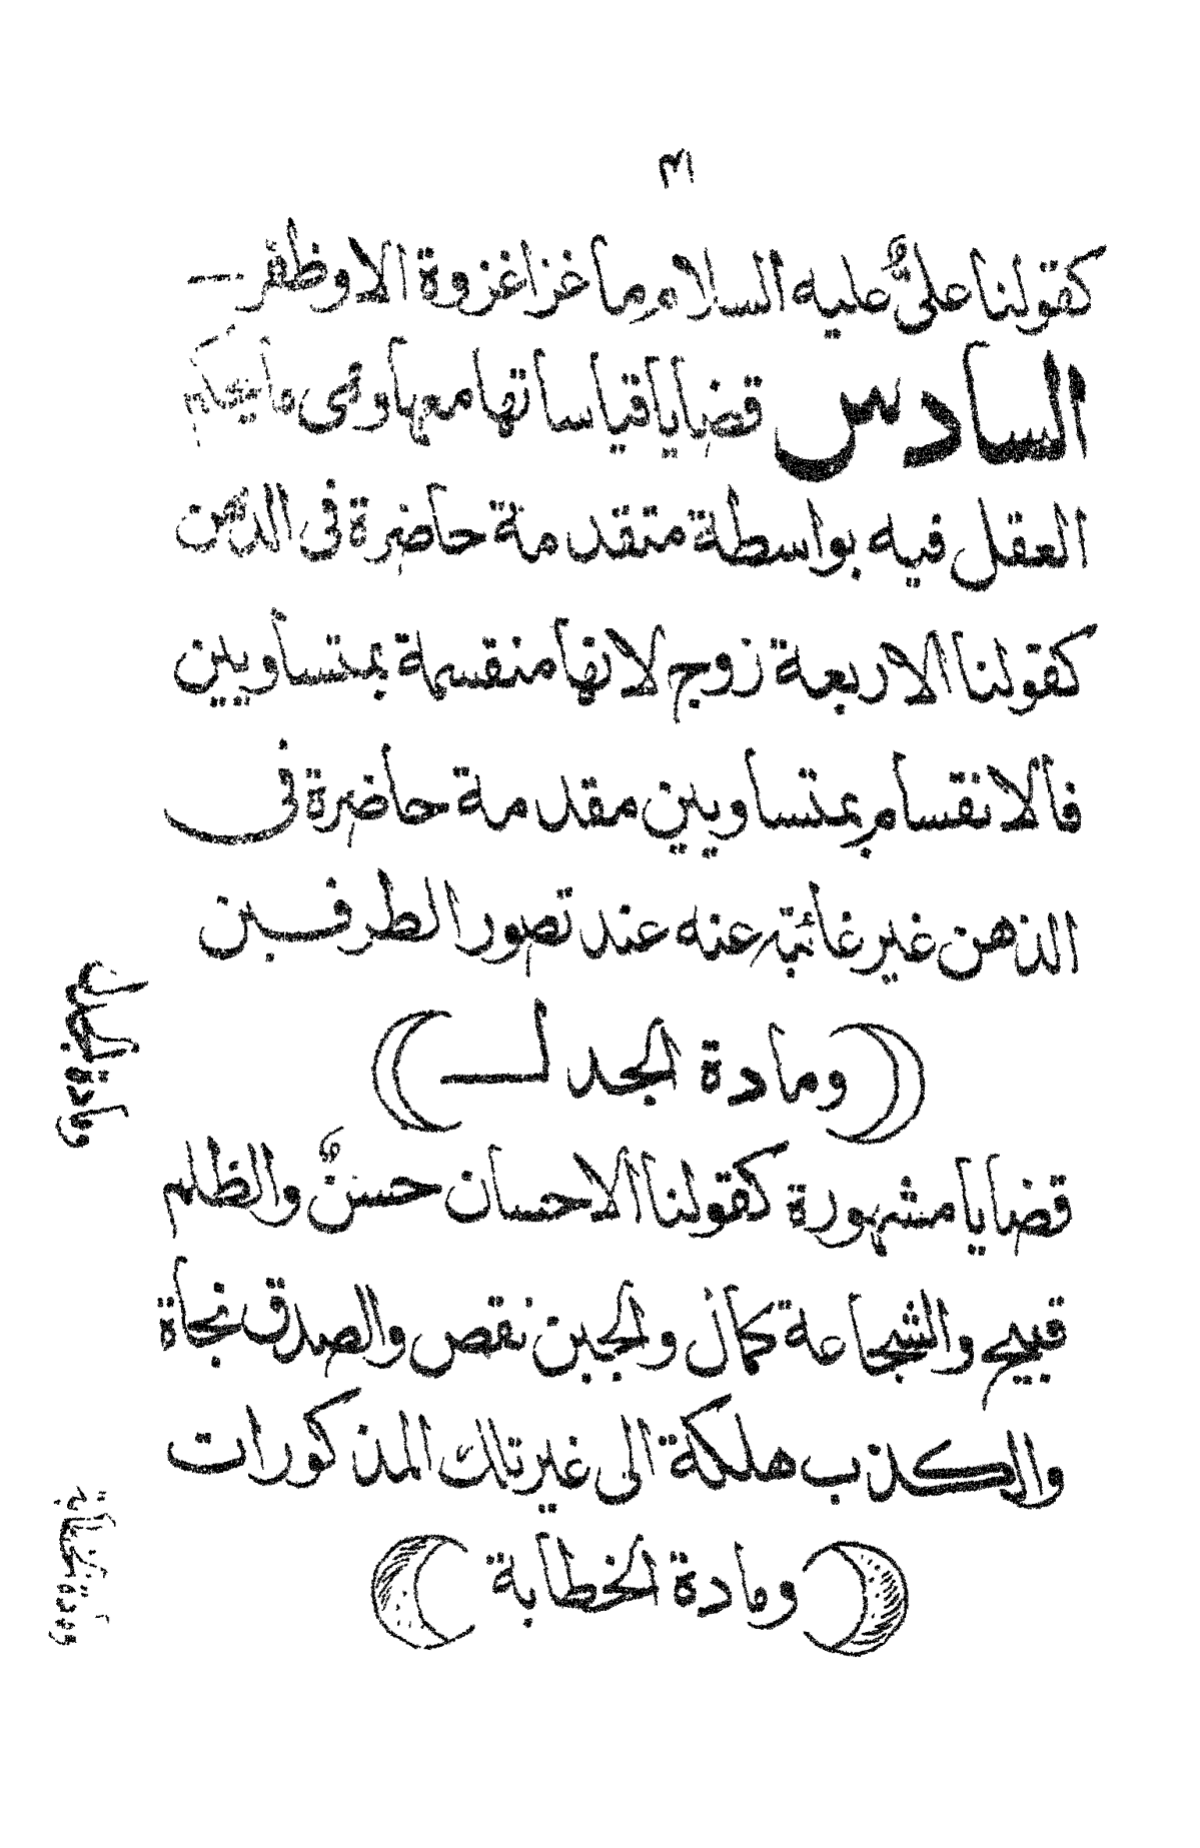 ٣١
كقولنا علىٌّ عليه السلام ما غزا غزوة الا وظفر
السادس قضايا قياساتها معها وهى ما يحكم
العقل فيه بواسطة متقدمة حاضرة فى الذهن
كقولنا الاربعة زوج لانها منقسمة بمتساويين
فالانقسام بمتساويين مقدمة حاضرة فى
الذهن غير غائبة عنه عند تصور الطرفين
(ومادة الجدل)
قضايا مشهورة كقولنا الاحسان حسنٌ والظلم
قبيح والشجاعة كمال والجبن نقص والصدق نجاة
والكذب هلكة الى غير تلك المذكورات
(ومادة الخطابة)
ومادة الجدل
ومادة الخطابة